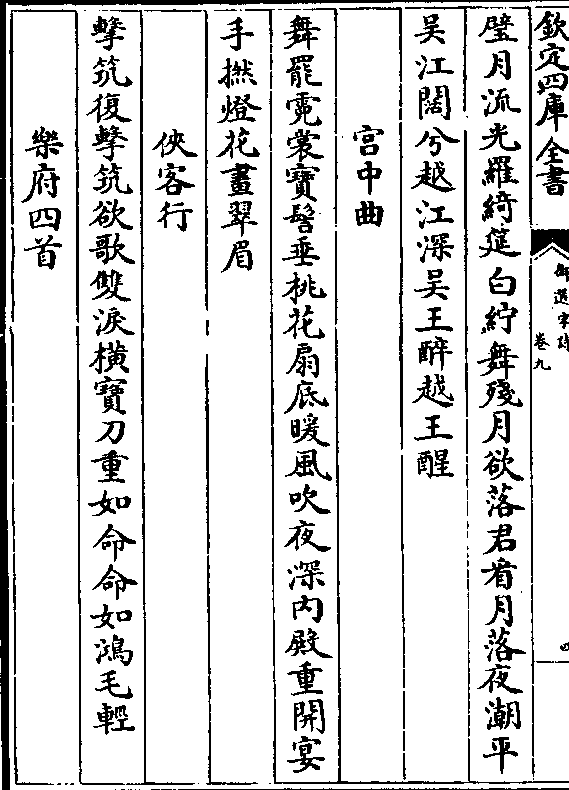 欽定四庫全書
御選宋詩 卷九
四
璧月流光羅綺筵白紵舞殘月欲落君看月落夜潮平
吴江闊兮越江深吴王醉越王醒
宫中曲
舞罷霓裳寶髻垂桃花扇底暖風吹夜深内殿重開宴
手撚燈花畫翠眉
俠客行
擊筑復擊筑欲歌雙淚橫寶刀重如命命如鴻毛輕
樂府四首